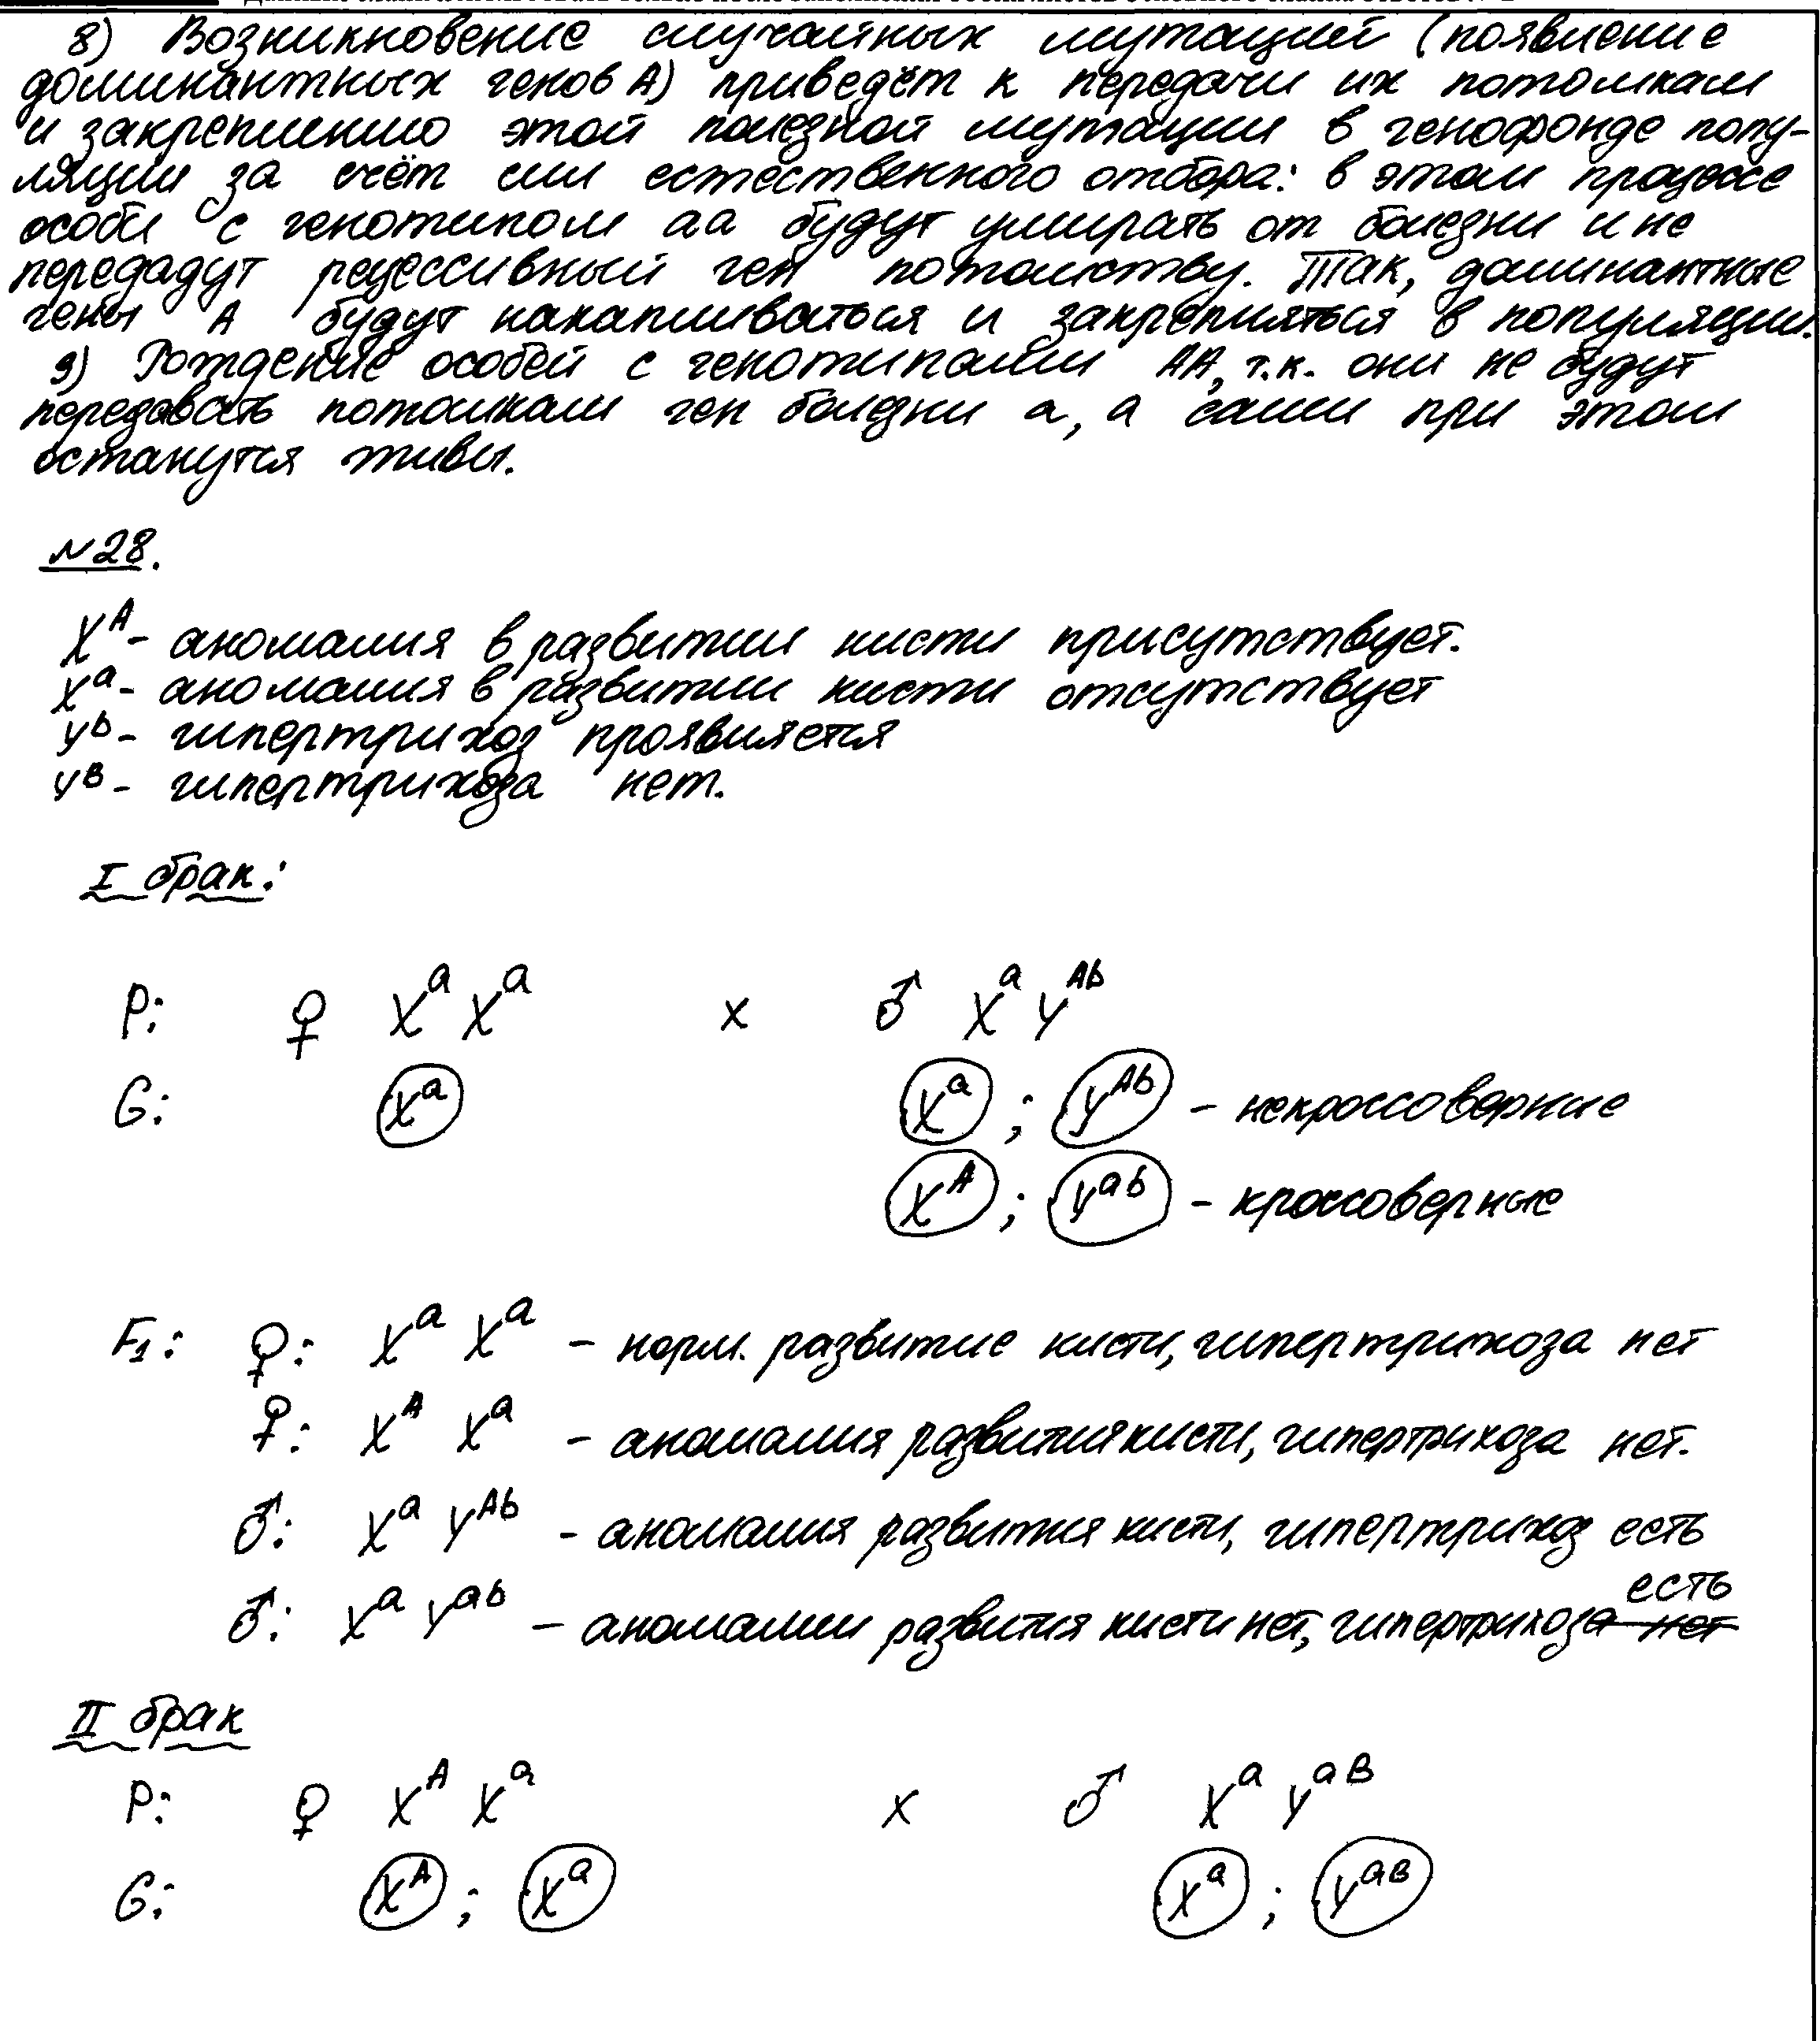 8) Возникновение случайных мутаций (появление
доминантных генов А) приведёт к передачи их потомкам
и закреплению этой полезной мутации в генофонде попу-
ляции за счёт сил естественного отбора: в этом процессе
особи с генотипом аа будут умирать от болезни и не
передадут рецессивный ген потомству. Так, доминантные
гены А будут накапливаться и закрепляться в популяции.
9) Рождение особей с генотипами АА, т.к. они не будут
передавать потомкам ген болезни а, а сами при этом
останутся живы.
№28.
X^A - аномалия в развитии кисти присутствует.
X^a - аномалия в развитии кисти отсутствует
Y^b - гипертрихоз проявляется
Y^B - гипертрихоза нет.
I брак:
P: ♀ X^a X^a x ♂ X^a Y^Ab
G: X^a X^a ; Y^Ab - некроссоверные
X^A ; Y^ab - кроссоверные
F1: ♀: X^a X^a - норм. развитие кисти, гипертрихоза нет
♀: X^A X^a - аномалия развития кисти, гипертрихоза нет.
♂: X^a Y^Ab - аномалия развития кисти, гипертрихоз есть
♂: X^a Y^ab - аномалии развития кисти нет, гипертрихоза нет есть
II брак
P: ♀ X^A X^a x ♂ X^a Y^aB
G: X^A ; X^a X^a ; Y^aB